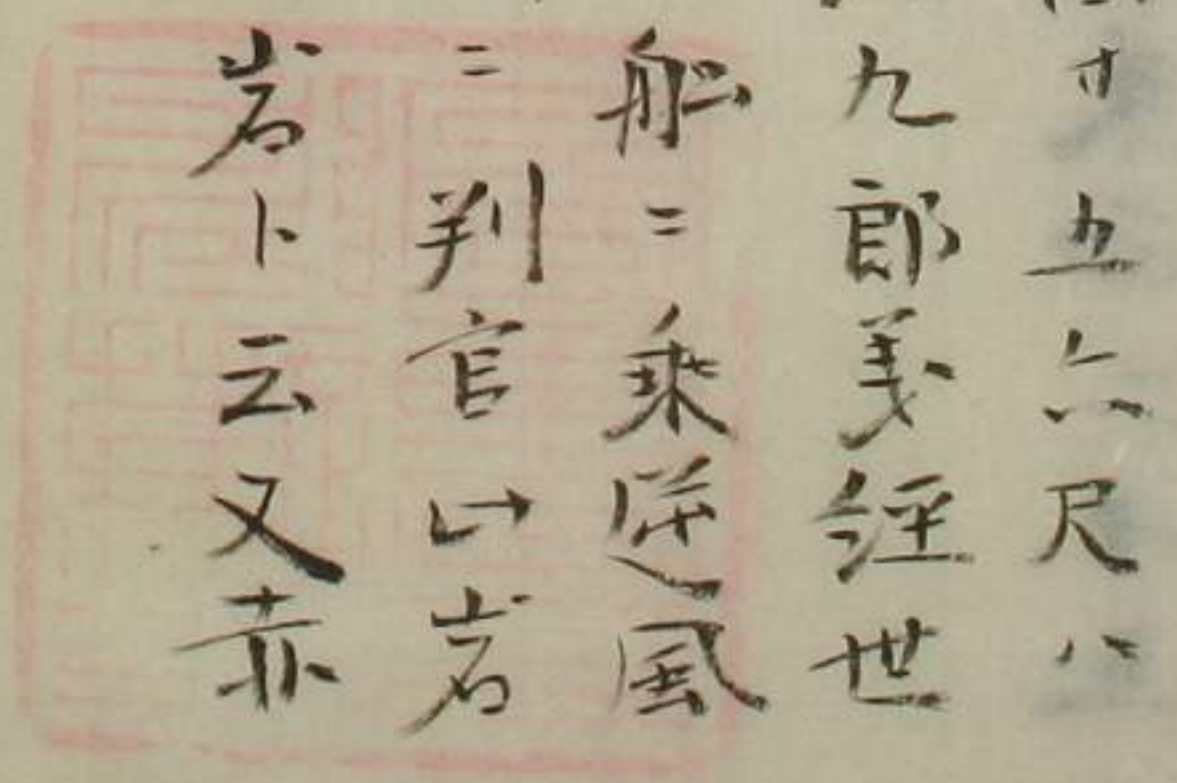 寸五六尺ハ
九郎義経世
船ニ乗逆風
ニ判官此岩
岩ト云又赤